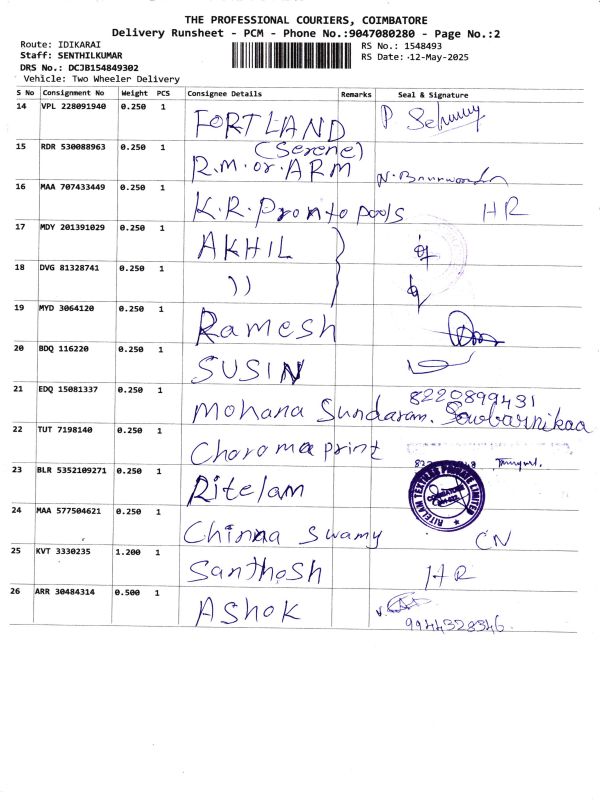 THE PROFESSIONAL COURIERS, COIMBATORE
Delivery Runsheet - PCM - Phone No.:9047080280 - Page No.:2
Route: IDIKARAI
RS No.: 1548493
Staff: SENTHILKUMAR
RS Date: 12-May-2025
DRS No.: DCJB154849302
Vehicle: Two Wheeler Delivery
S No Consignment No Weight PCS Consignee Details Remarks Seal & Signature
14 VPL 228091940 0.250 1 FORTLAND P
15 RDR 530088963 0.250 1 (Serene)
R.M.or.ARM
16 MAA 707433449 0.250 1 K.R.Pronto pools HR
17 MDY 201391029 0.250 1 AKHIL
18 DVG 81328741 0.250 1 ))
19 MYD 3064120 0.250 1 Ramesh
20 BDQ 116220 0.250 1 SUSIN
21 EDQ 15081337 0.250 1 Mohana Sundaram. 8220899431
Sowbarnikaa
22 TUT 7198140 0.250 1 Choroma print
23 BLR 5352109271 0.250 1 Ritelam
RITELAN TEXTILES PRIVATE LIMITED
24 MAA 577504621 0.250 1 Chinna Swamy CN
25 KVT 3330235 1.200 1 Santhosh HR
26 ARR 30484314 0.500 1 ASHOK
9944328346.